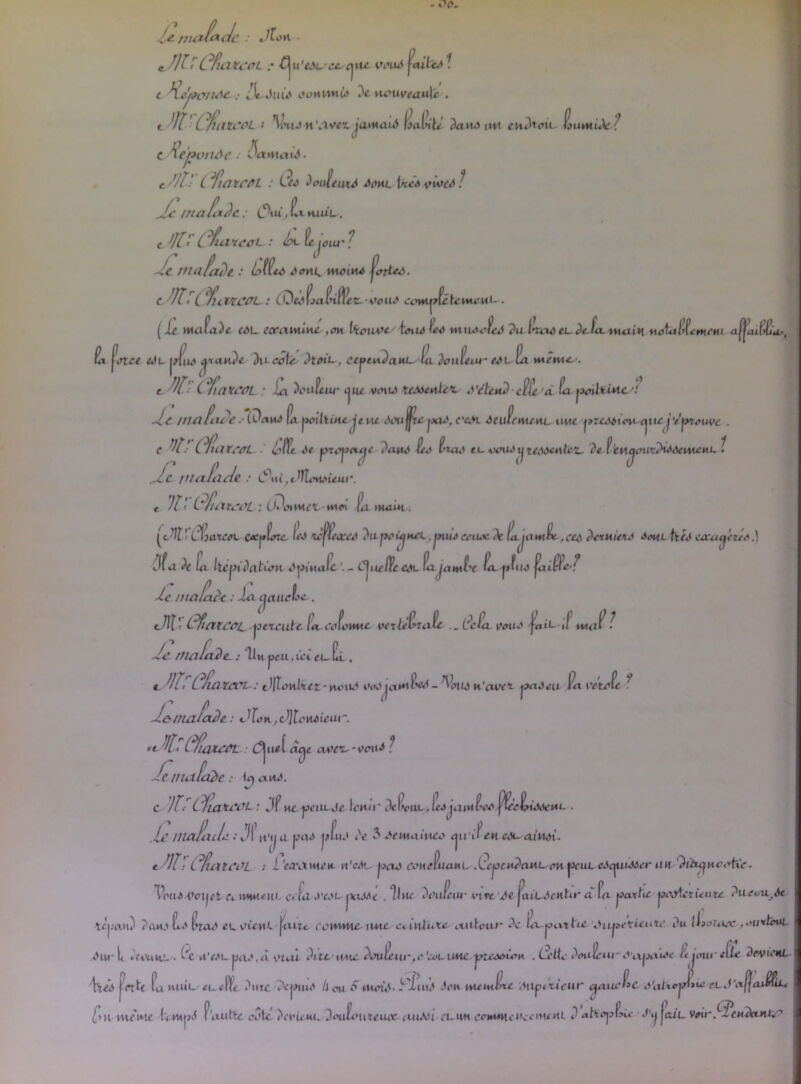 Le malade : Non.
Mr Charcot : Qu'est-ce que vous faites ?
Réponse : Je suis commis de nouveauté.
Mr Charcot : Vous n'avez jamais habité dans un endroit humide ?
Réponse : Jamais.
Mr Charcot : Ces douleurs sont très vives ?
Le malade : Oui, la nuit.
Mr Charcot : Et le jour ?
Le malade : Elles sont moins fortes.
Mr Charcot : Déshabillez-vous complètement.
(Le malade est examiné, on trouve tous les muscles du bras et de la main notablement affaiblis,
la force est plus grande du côté droit, cependant la douleur est la même.
Mr Charcot : La douleur que vous ressentez s'étend-elle à la poitrine ?
Le malade : Dans la poitrine je ne souffre pas, c'est seulement une pression que j'éprouve.
Mr Charcot : Elle se propage dans les bras et vous y ressentez de l'engourdissement ?
Le malade : Oui, Monsieur.
Mr Charcot : Donnez-moi la main.
(Mr Charcot explore les réflexes du poignet, puis ceux de la jambe, ces derniers sont très exagérés.)
Il a de la trépidation spinale. - Quelle est la jambe la plus faible ?
Le malade : La gauche.
Mr Charcot percute la colonne vertébrale .. Cela vous fait-il mal ?
Le malade : Un peu, ici et là.
Mr Charcot : Montrez-nous vos jambes - Vous n'avez pas eu la vérole ?
Le malade : Non, Monsieur.
Mr Charcot : Quel âge avez-vous ?
Le malade : 19 ans.
Mr Charcot : Il ne peut se tenir debout, les jambes fléchissent.
Le malade : Il n'y a pas plus de 3 semaines qu'il en est ainsi.
Mr Charcot : L'examen n'est pas concluant. Cependant on peut esquisser un diagnostic.
Vous voyez comment cela s'est passé. Une douleur vive se fait sentir à la partie postérieure du cou, se
répand dans les bras et vient faire comme une ceinture autour de la partie supérieure du thorax, surtout
sur le devant. Ce n'est pas, à vrai dire une douleur, c'est une pression. Cette douleur s'apaise le jour elle devient
très forte la nuit et elle dure depuis 4 ou 5 mois. Puis son membre supérieur gauche s'atrophie et s'affaiblit,
En même temps l'autre côté devient douloureux aussi et un commencement d'atrophie s'y fait voir. Pendant